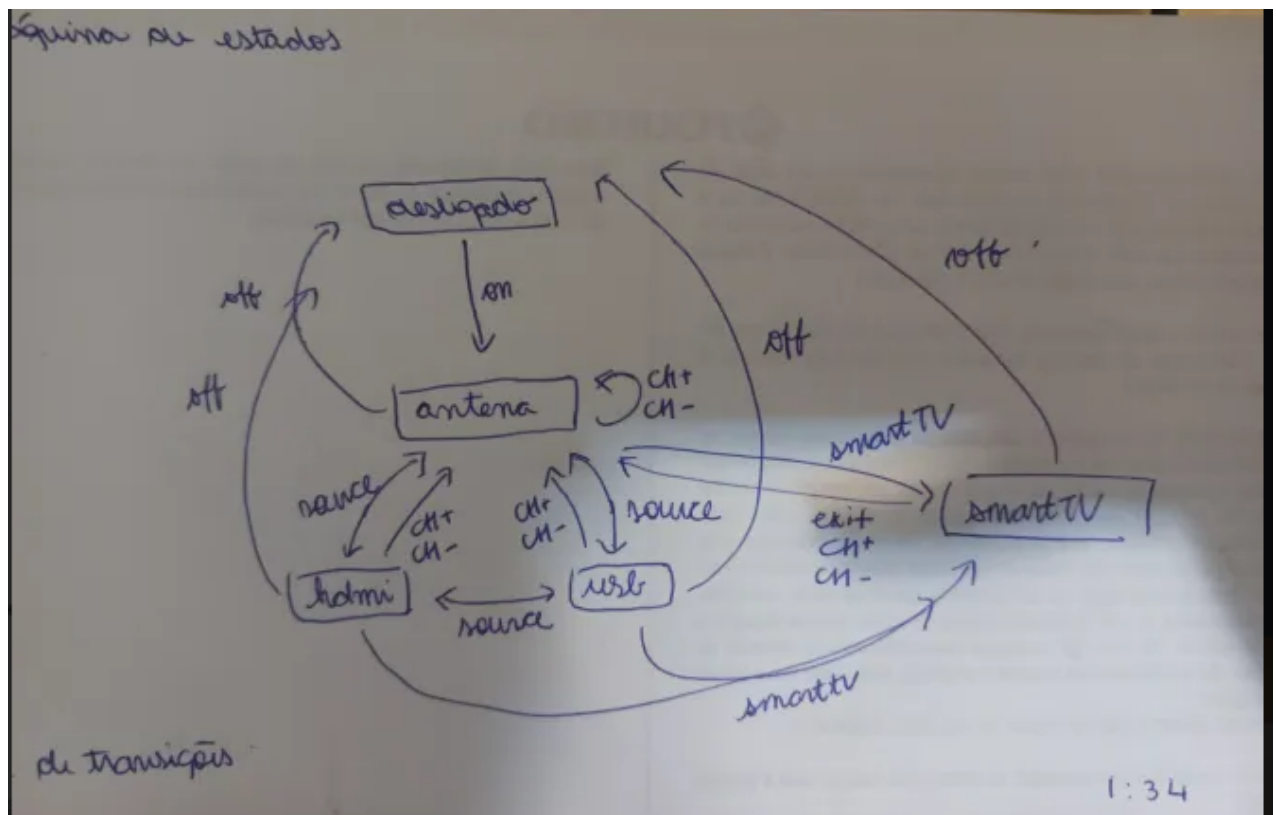 áquina de estados
desligado
off
on
off
off
off
antena
CH+
CH-
smart TV
source
CH+
CH-
CH+
CH-
source
exit
CH+
CH-
smart TV
hdmi
usb
source
smarttv
de transições
1:34